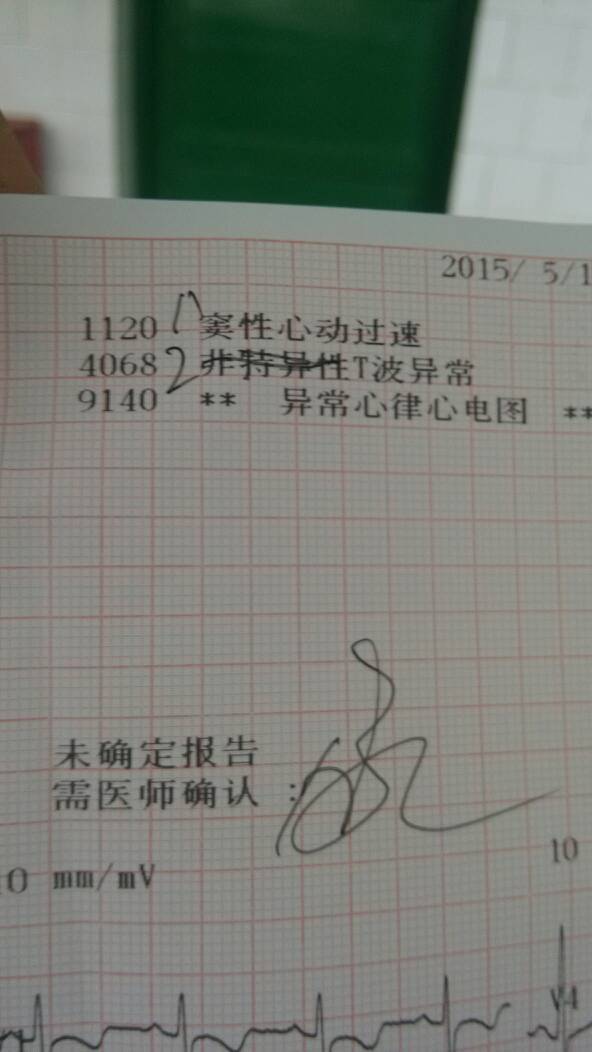 2015/ 5/1
1120 1) 窦性心动过速
4068 2 非特异性T波异常
9140 ** 异常心律心电图 **
未确定报告
需医师确认 :
10
0 mm/mV
V4